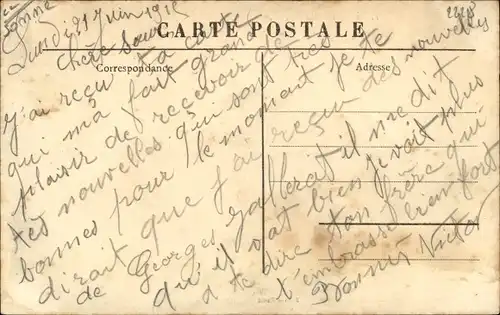 Lundi 21 Juin 191
CARTE POSTALE
Correspondance
Adresse
Chère Sœur
J'ai reçu ta carte
qui m'a fait grand
plaisir de recevoir de
tes nouvelles qui sont très
bonnes pour le momant je te
dirait que j'ai reçu des nouvelles
de Georges il me dit
qu'il vat bien je voit plus
a te dire ton frère qui
t'embrasse bien fort
Victor